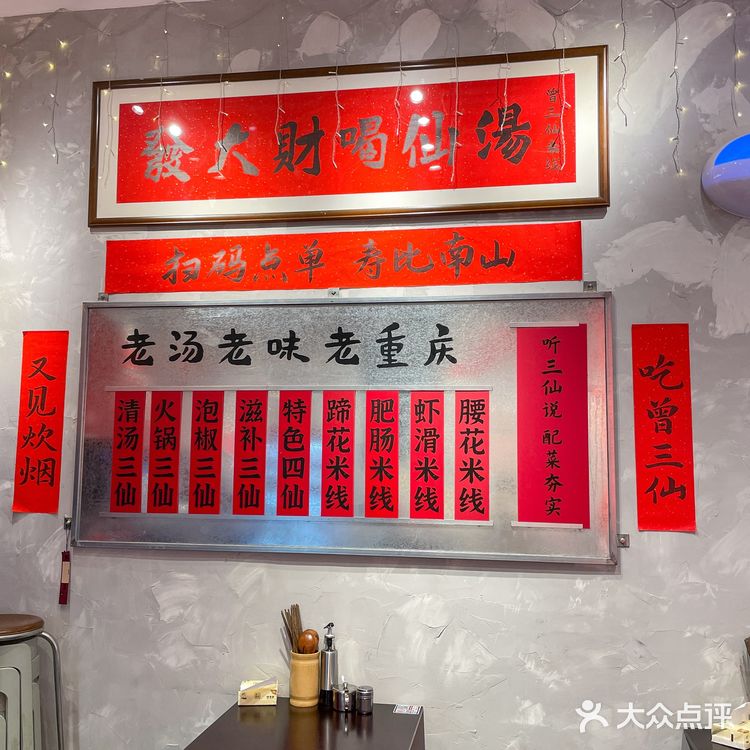 發大财喝仙湯
曾三仙米线
扫码点单 寿比南山
老汤老味老重庆
清汤三仙
火锅三仙
泡椒三仙
滋补三仙
特色四仙
蹄花米线
肥肠米线
虾滑米线
腰花米线
听三仙说 配菜夯实
又见炊烟
吃曾三仙
大众点评